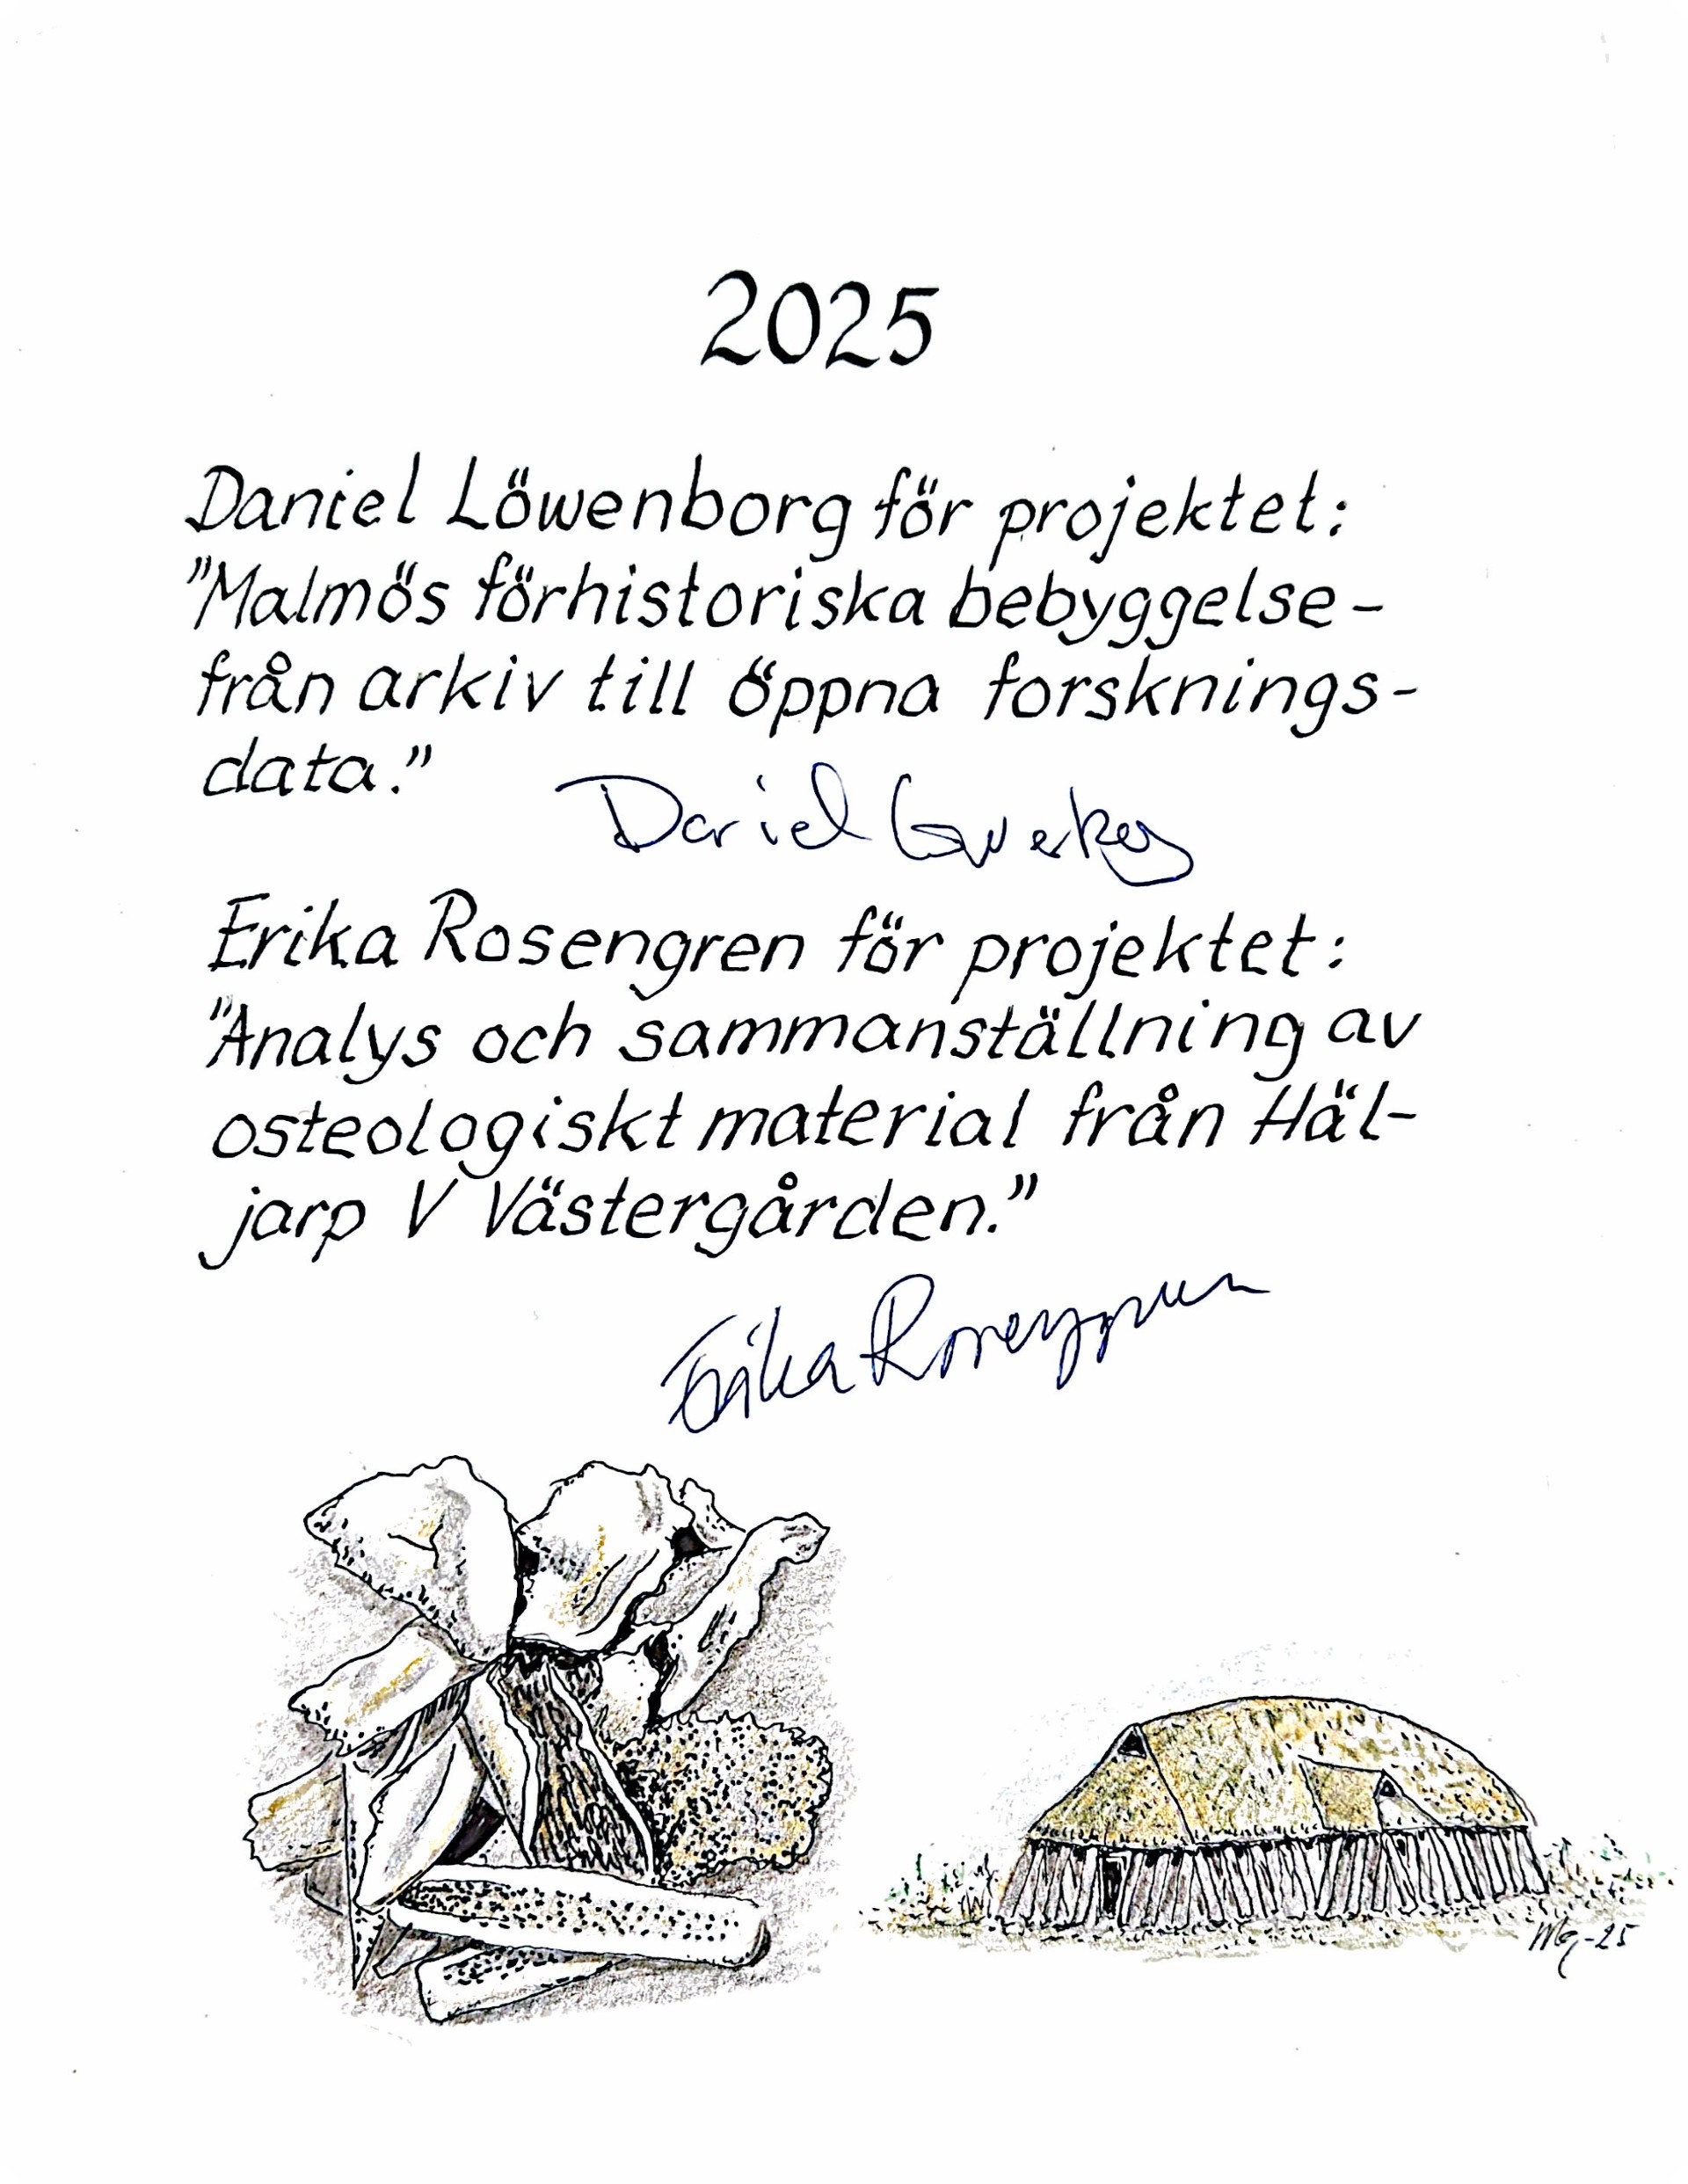 2025
Daniel Löwenborg för projektet:
"Malmös förhistoriska bebyggelse-
från arkiv till öppna forsknings-
data."
Daniel Löwenborg
Erika Rosengren för projektet:
"Analys och sammanställning av
osteologiskt material från Häl-
jarp V Västergården."
Erika Rosengren
-25